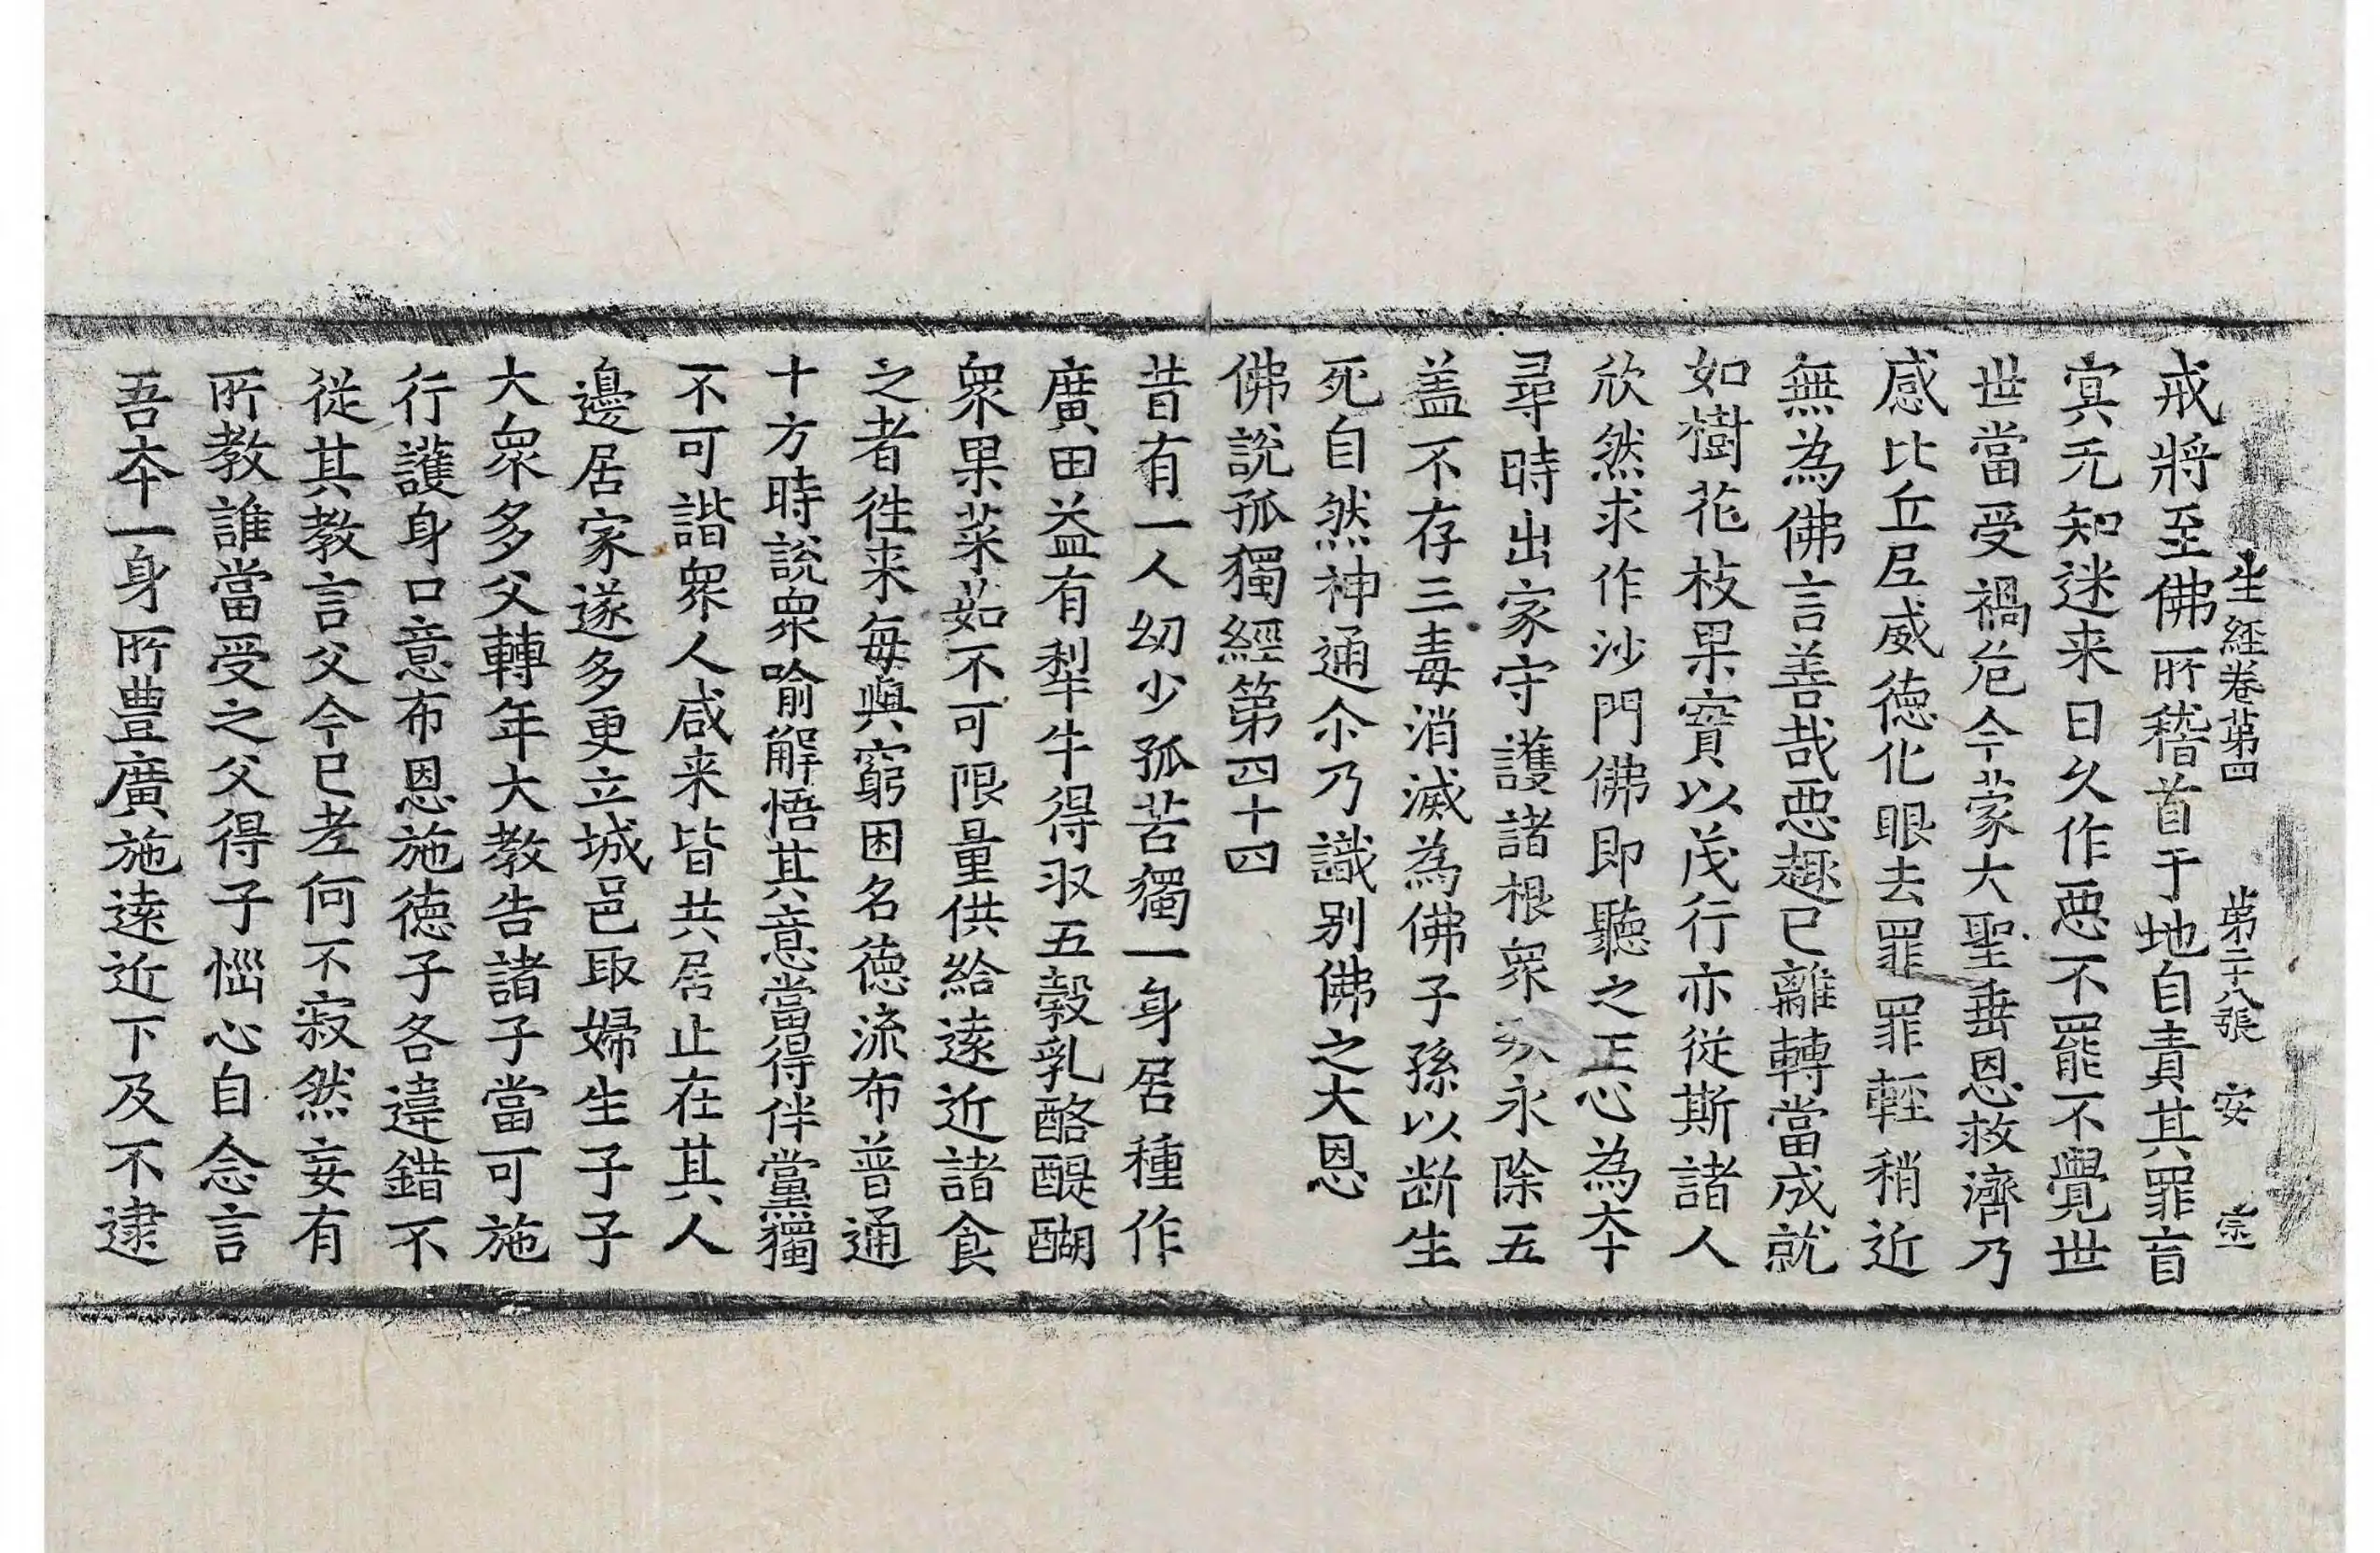 生經卷第四 第二十八張 安 宗
戒將至佛所稽首于地自責其罪盲
冥无知迷来日久作惡不罷不覺世
世當受禍危今蒙大聖垂恩救濟乃
感比丘尼威德化眼去罪罪輕稍近
無為佛言善哉惡趣已離轉當成就
如樹花枝果實以茂行亦從斯諸人
欣然求作沙門佛即聽之正心為本
尋時出家守護諸根衆永除五
盖不存三毒消滅為佛子孫以断生
死自然神通尒乃識别佛之大恩
佛說孤獨經第四十四
昔有一人幼少孤苦獨一身居種作
廣田益有犁牛得収五穀乳酪醍醐
衆果菜茹不可限量供給遠近諸食
之者徃来每與窮困名德流布普通
十方時說衆喻解悟其意當得伴黨獨
不可諧衆人咸来皆共居止在其人
邊居家遂多更立城邑取婦生子子
大衆多父轉年大教告諸子當可施
行護身口意布恩施德子各違錯不
從其教言父今已老何不寂然妄有
所教誰當受之父得子惱心自念言
吾本一身所豊廣施遠近下及不逮